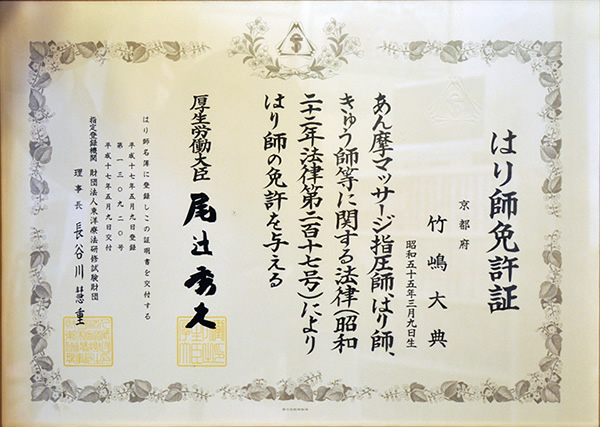 はり師免許証
京都府
竹嶋大典
昭和五十五年三月九日生
あん摩マッサージ指圧師、はり師、
きゅう師等に関する法律(昭和
二十二年法律第二百十七号)により
はり師の免許を与える
厚生労働大臣 尾辻秀久
はり師名簿に登録しこの証明書を交付する
平成十七年五月九日登録
第一三〇九二〇号
平成十七年五月九日交付
指定登録機関 財団法人東洋療法研修試験財団
理事長 長谷川慧重